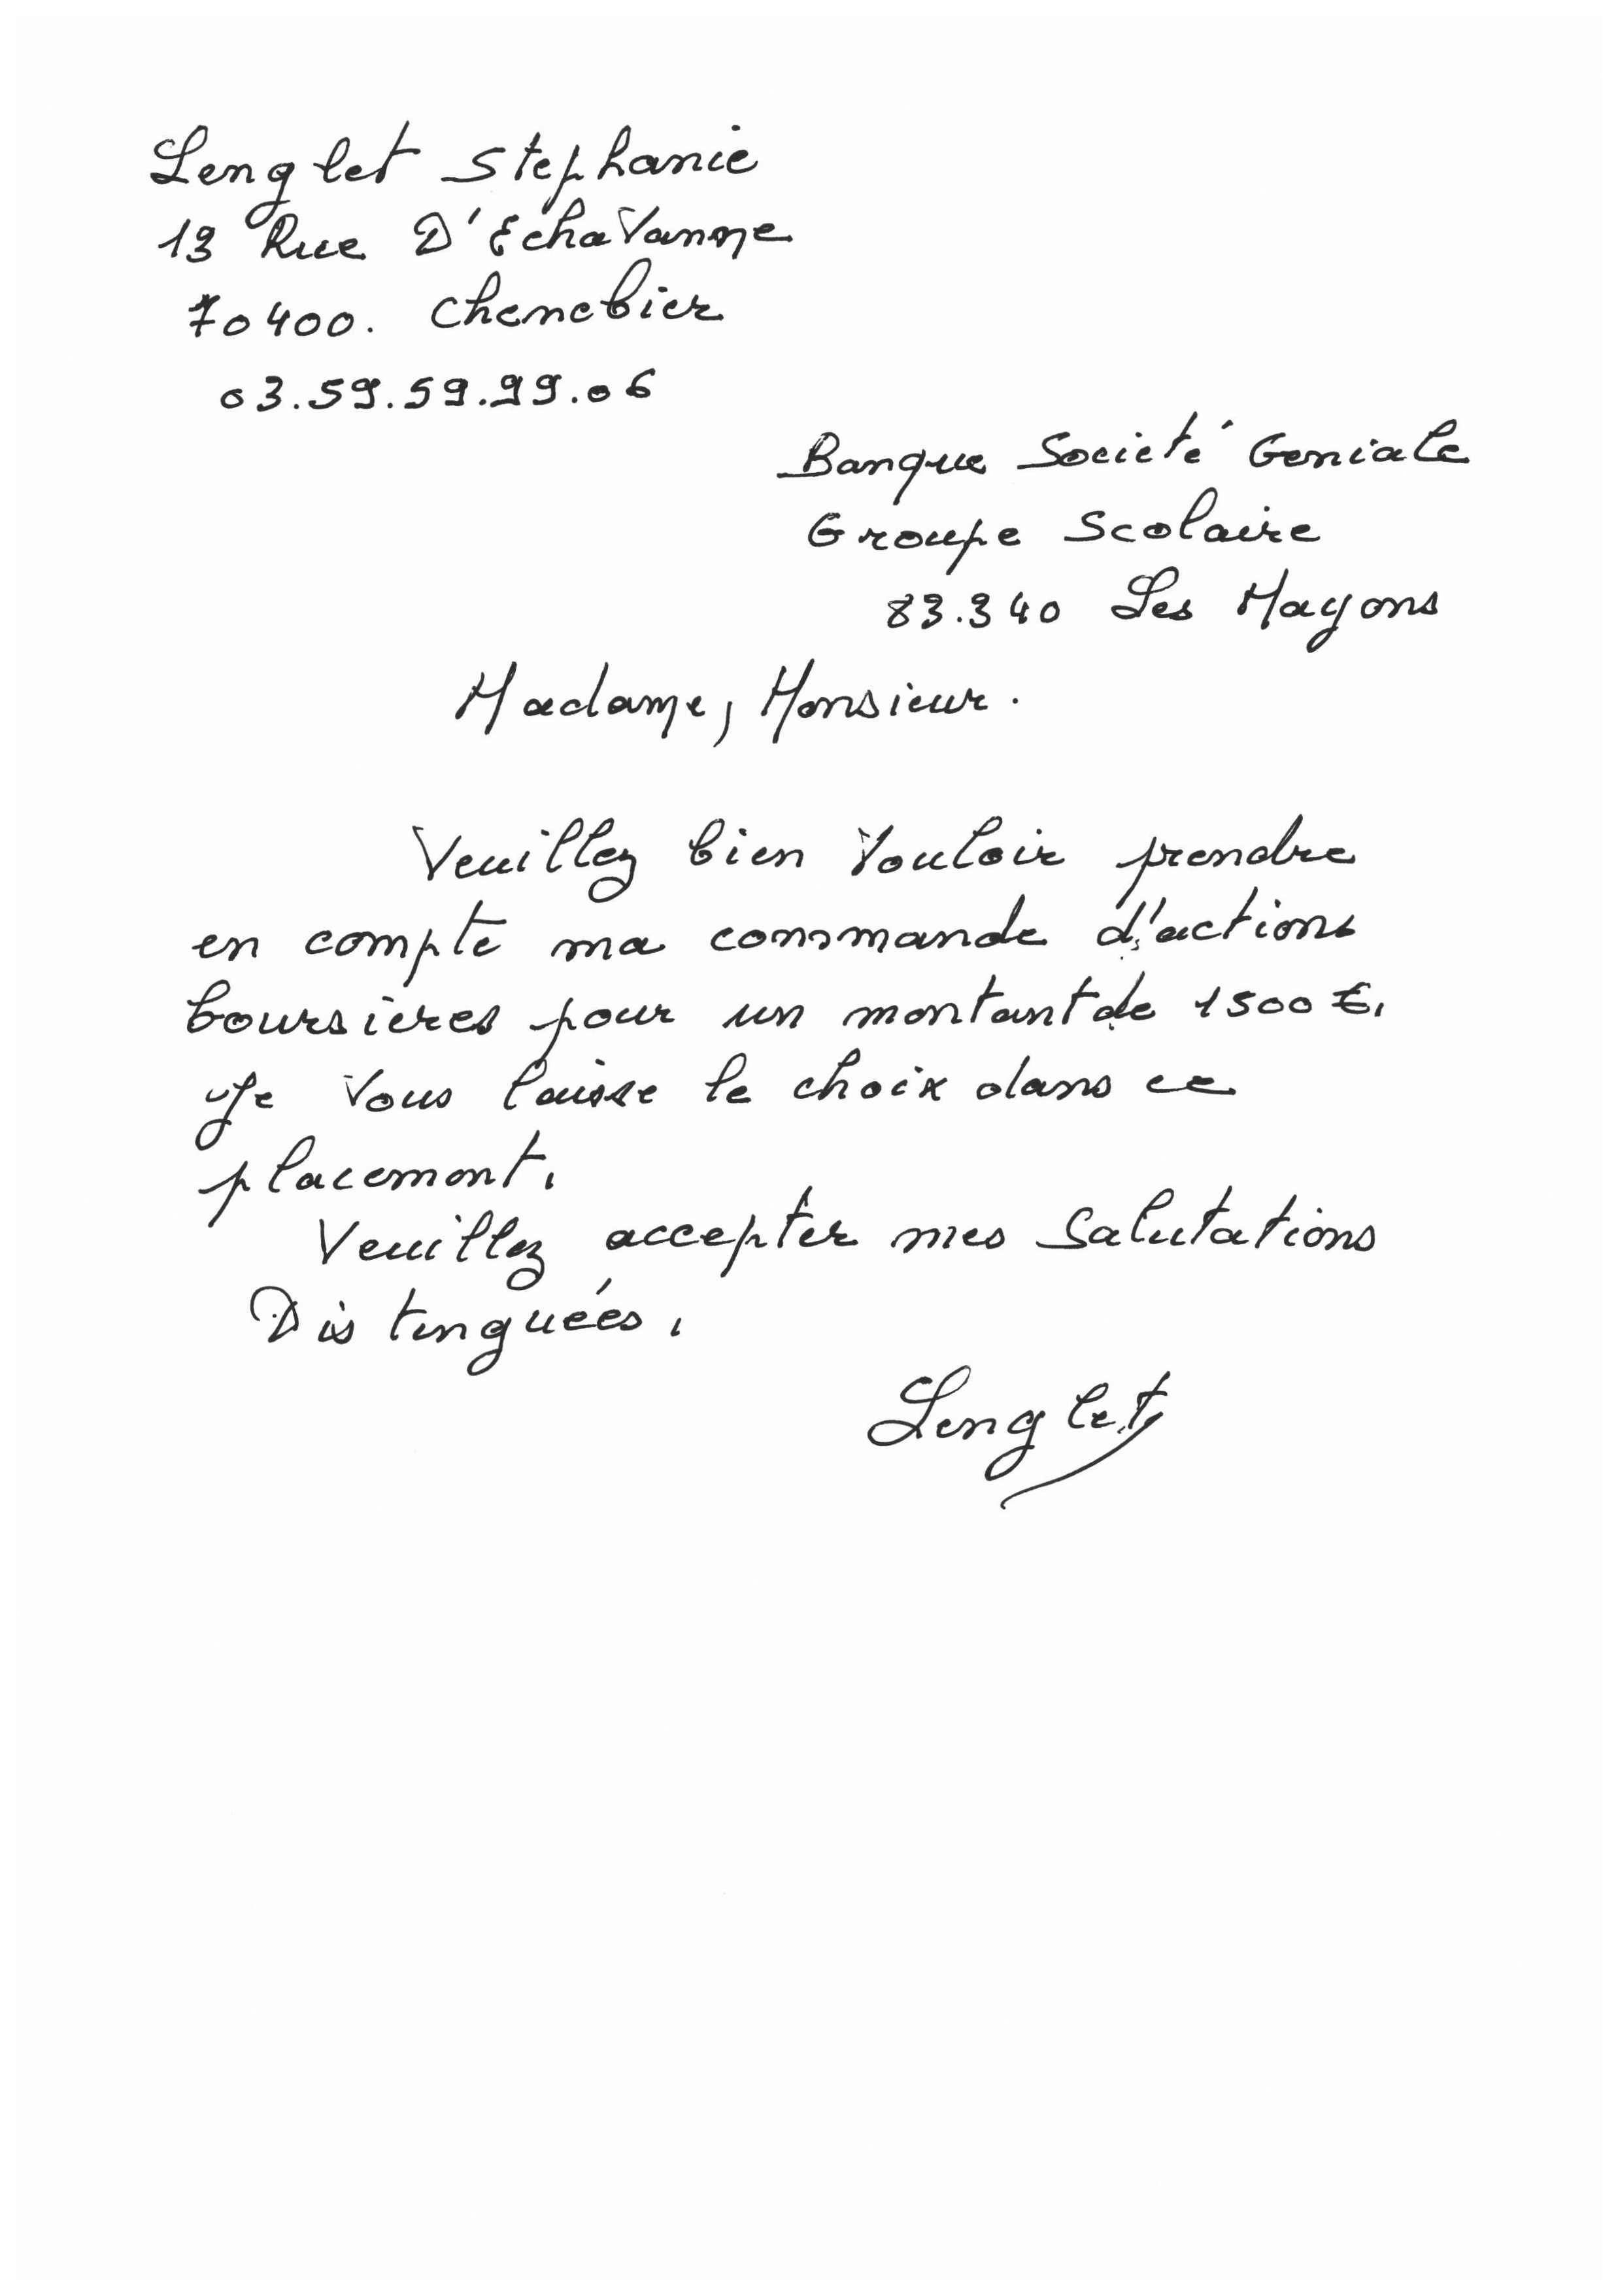 Lenglet Stephanie
13 Rue D'Echavanne
70400. Chenebier
03.59.59.99.06
Banque Societé Geniale
Groupe Scolaire
83.340 Les Mayons
Madame, Monsieur.
Veuillez bien vouloir prendre
en compte ma commande d'actions
boursieres pour un montant de 1500 €.
Je vous laisse le choix dans ce
placement.
Veuillez accepter mes Salutations
Distinguées.
Lenglet